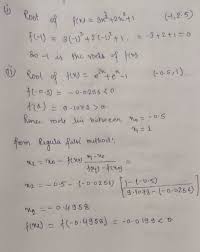 i) Root of f(x) = 3x³+2x²+1 (-1, 2.5)
f(-1) = 3(-1)³+2(-1)²+1 = -3+2+1 = 0
So -1 is the roots of f(x)
ii) Root of f(x) = e²ˣ+eˣ-1 (-0.5, 1)
f(-0.5) = -0.0256 < 0
f(1) = 9.1073 > 0
Hence root lies between x₀ = -0.5
x₁ = 1
from Regula falsi method;
x₂ = x₀ - f(x₀) (x₁-x₀)/(f(x₁)-f(x₀))
x₂ = -0.5 - (-0.0256) [1-(-0.5)/9.1073-(-0.0256)]
x₂ = -0.4958
f(x₂) = f(-0.4958) = -0.0199 < 0